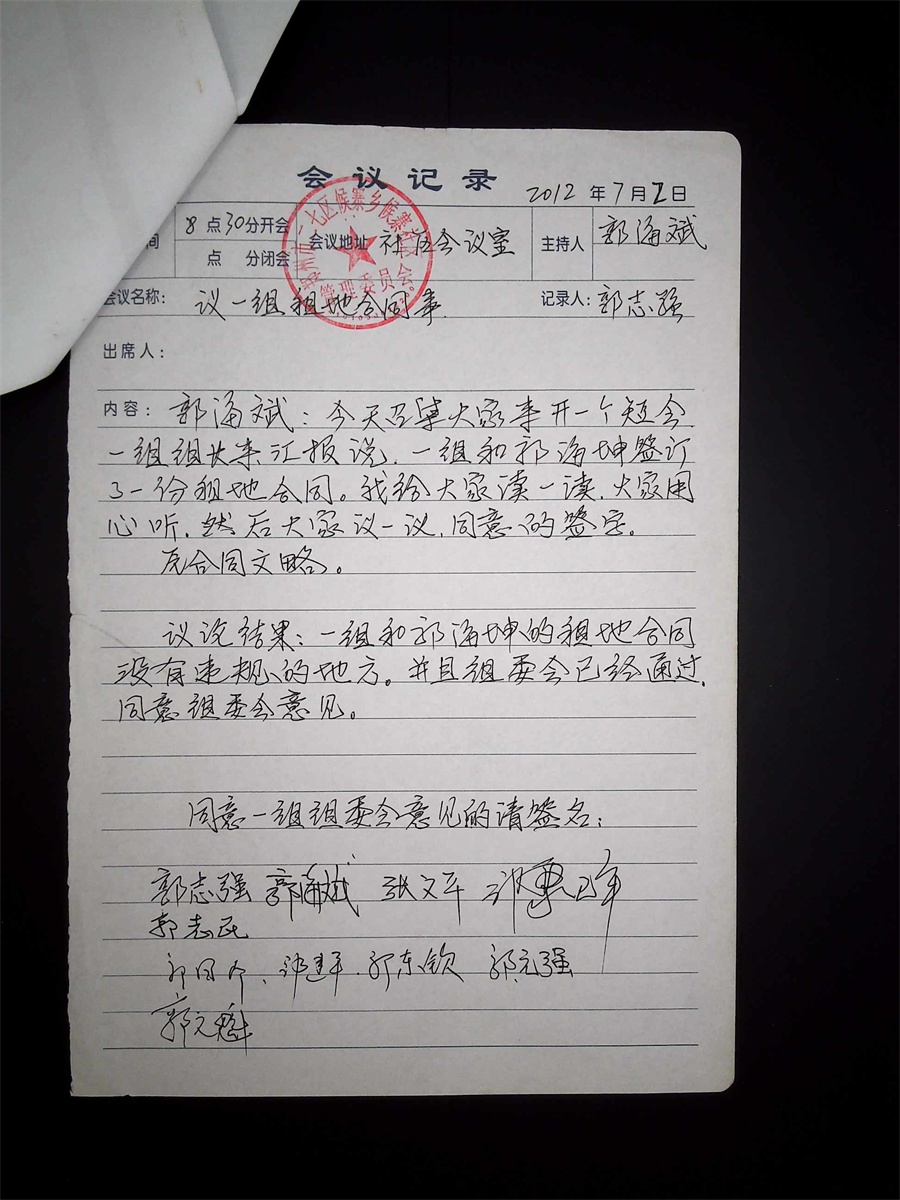 会议记录
2012年7月2日
间 8点30分开会 会议地址 社区会议室 主持人 郭海斌
点 分闭会
会议名称：议一组租地合同事. 记录人：郭志强
郑州市二七区候寨乡候寨社区
管理委员会
出席人：
内容：郭海斌：今天召集大家来开一个短会.
一组组长来汇报说.一组和郭海坤签订
了一份租地合同。我给大家读一读.大家用
心听.然后大家议一议,同意的签字。
原合同文略。
议论结果：一组和郭海坤的租地合同
没有违规的地方。并且组委会已经通过.
同意组委会意见。
同意一组组委会意见的请签名：
郭志强 郭海斌 张文军
郭志民
郭建军.郭东钦 郭元强
郭元魁